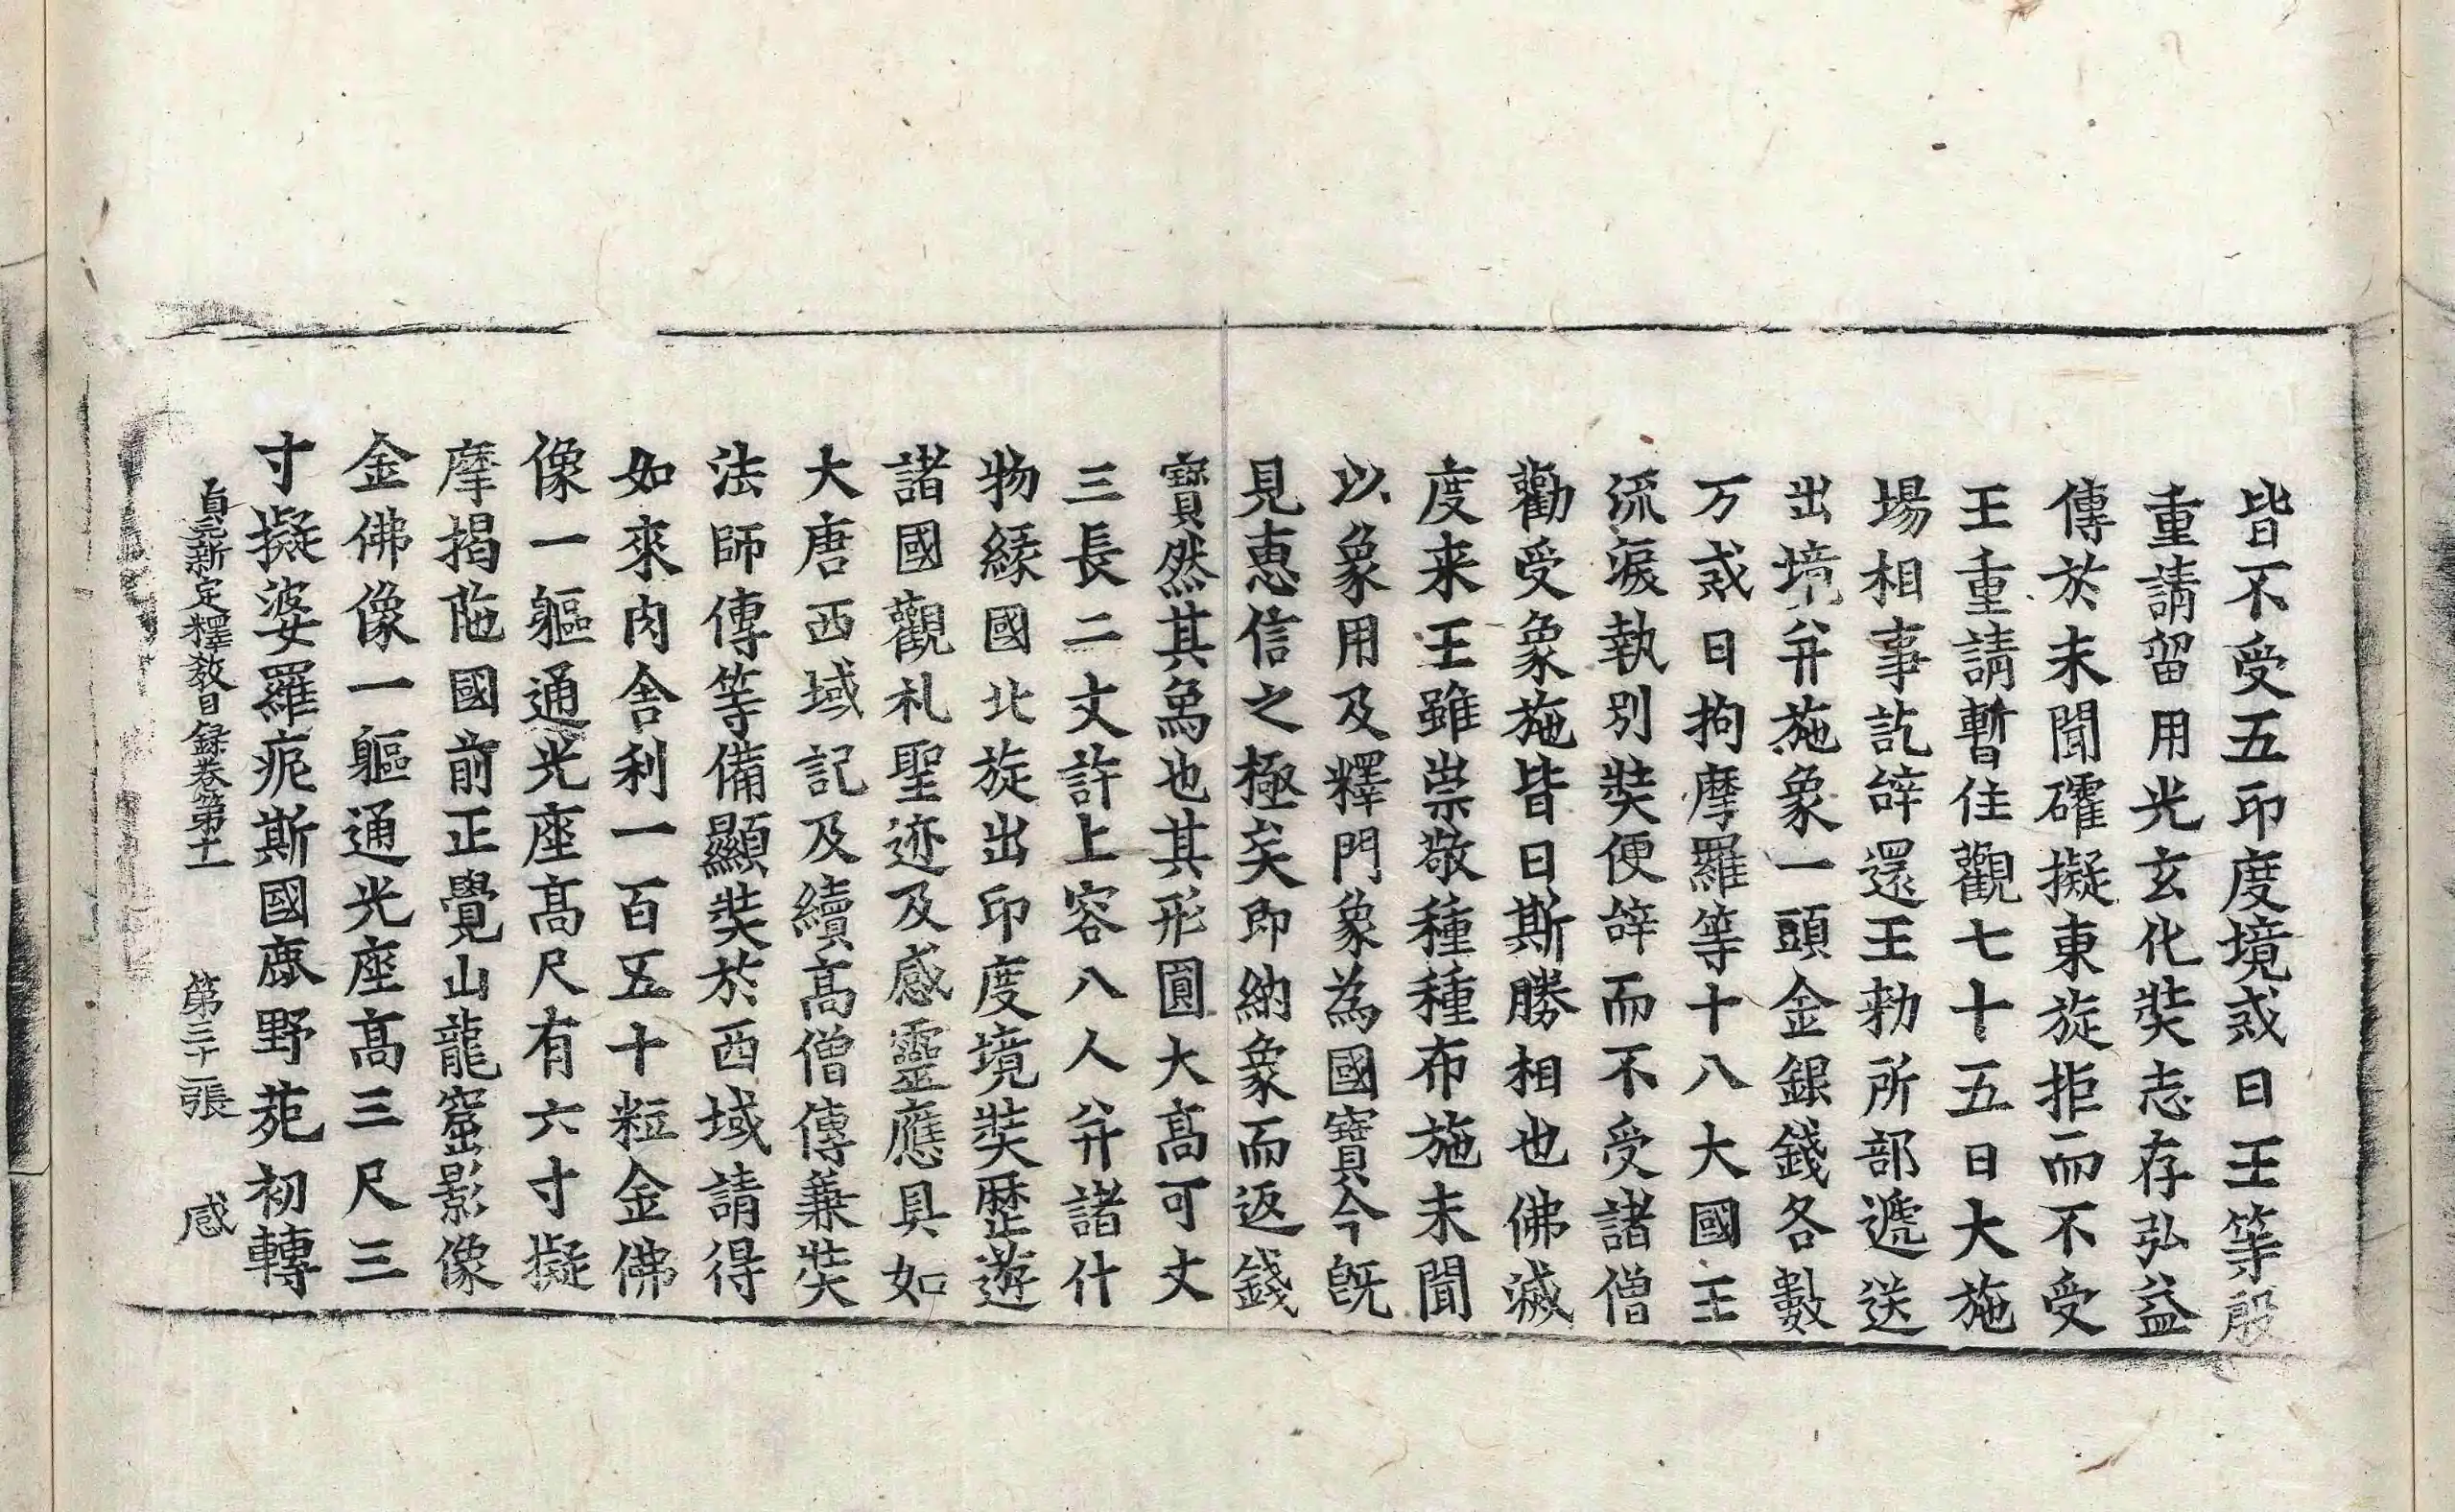 皆不受五印度境戒日王等殷
重請留用光玄化奘志存弘益
傳於未聞確擬東旋拒而不受
王重請暫住觀七十五日大施
場相事訖辝還王勑所部遞送
出境并施象一頭金銀錢各數
万戒日拘摩羅等十八大國王
流淚執別奘便辝而不受諸僧
勸受象施皆曰斯勝相也佛滅
度来王雖崇敬種種布施未聞
以象用及釋門象為國寶今旣
見惠信之極矣即納象而返錢
寶然其象也其形圓大高可丈
三長二丈許上容八人并諸什
物緣國北旋出印度境奘歷遊
諸國觀礼聖迹及感靈應具如
大唐西域記及續高僧傳兼奘
法師傳等備顯奘於西域請得
如來肉舍利一百五十粒金佛
像一軀通光座高尺有六寸擬
摩揭陁國前正覺山龍窟影像
金佛像一軀通光座高三尺三
寸擬婆羅痆斯國鹿野苑初轉
貞元新定釋教目録卷第十一 第三十二張 感